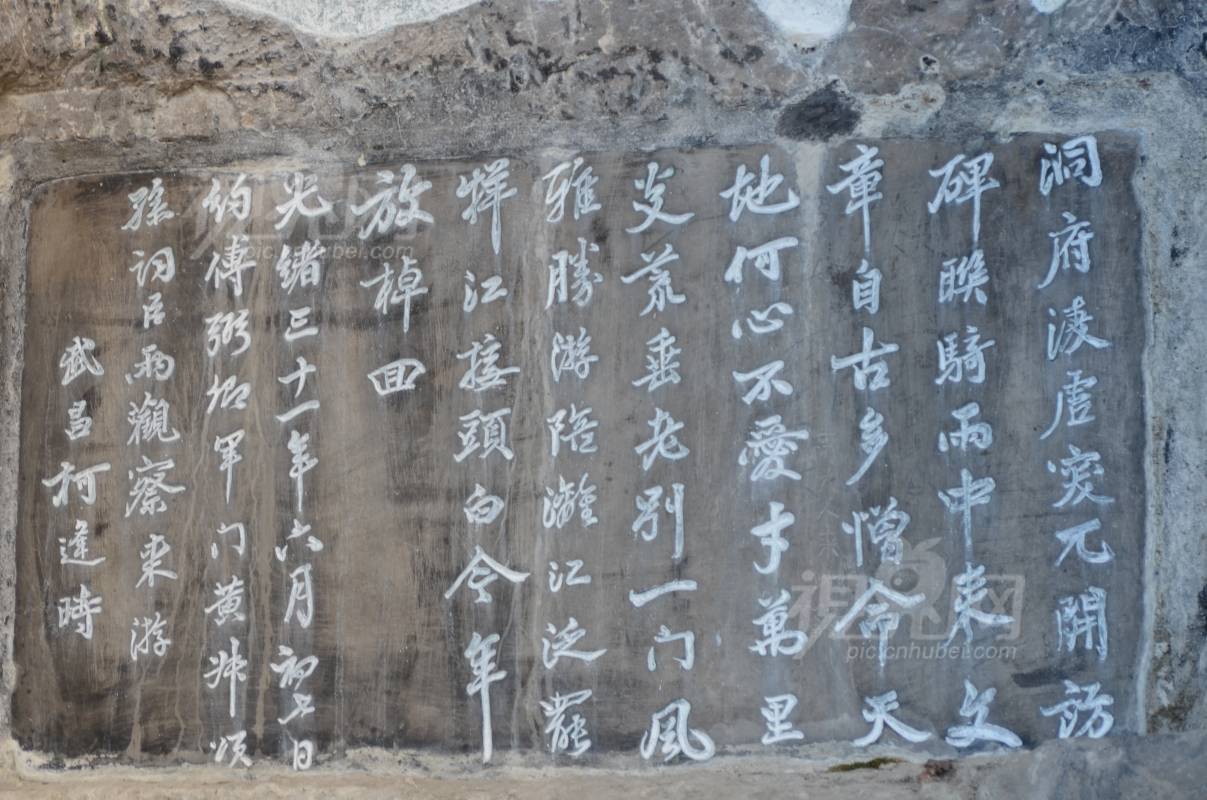 洞府淩虛突兀開訪
碑聯騎雨中来文
章自古多憎命天
地何心不愛才萬里
炎荒垂老别一门風
雅勝游陪灕江泛罷
牂江接頭白今年
放棹回
光緒三十一年六月初七日
約傅弼卿軍门黄叔頌
孫詞臣兩觀察来游
武昌柯逢時
視界网
pic.cnhubei.com